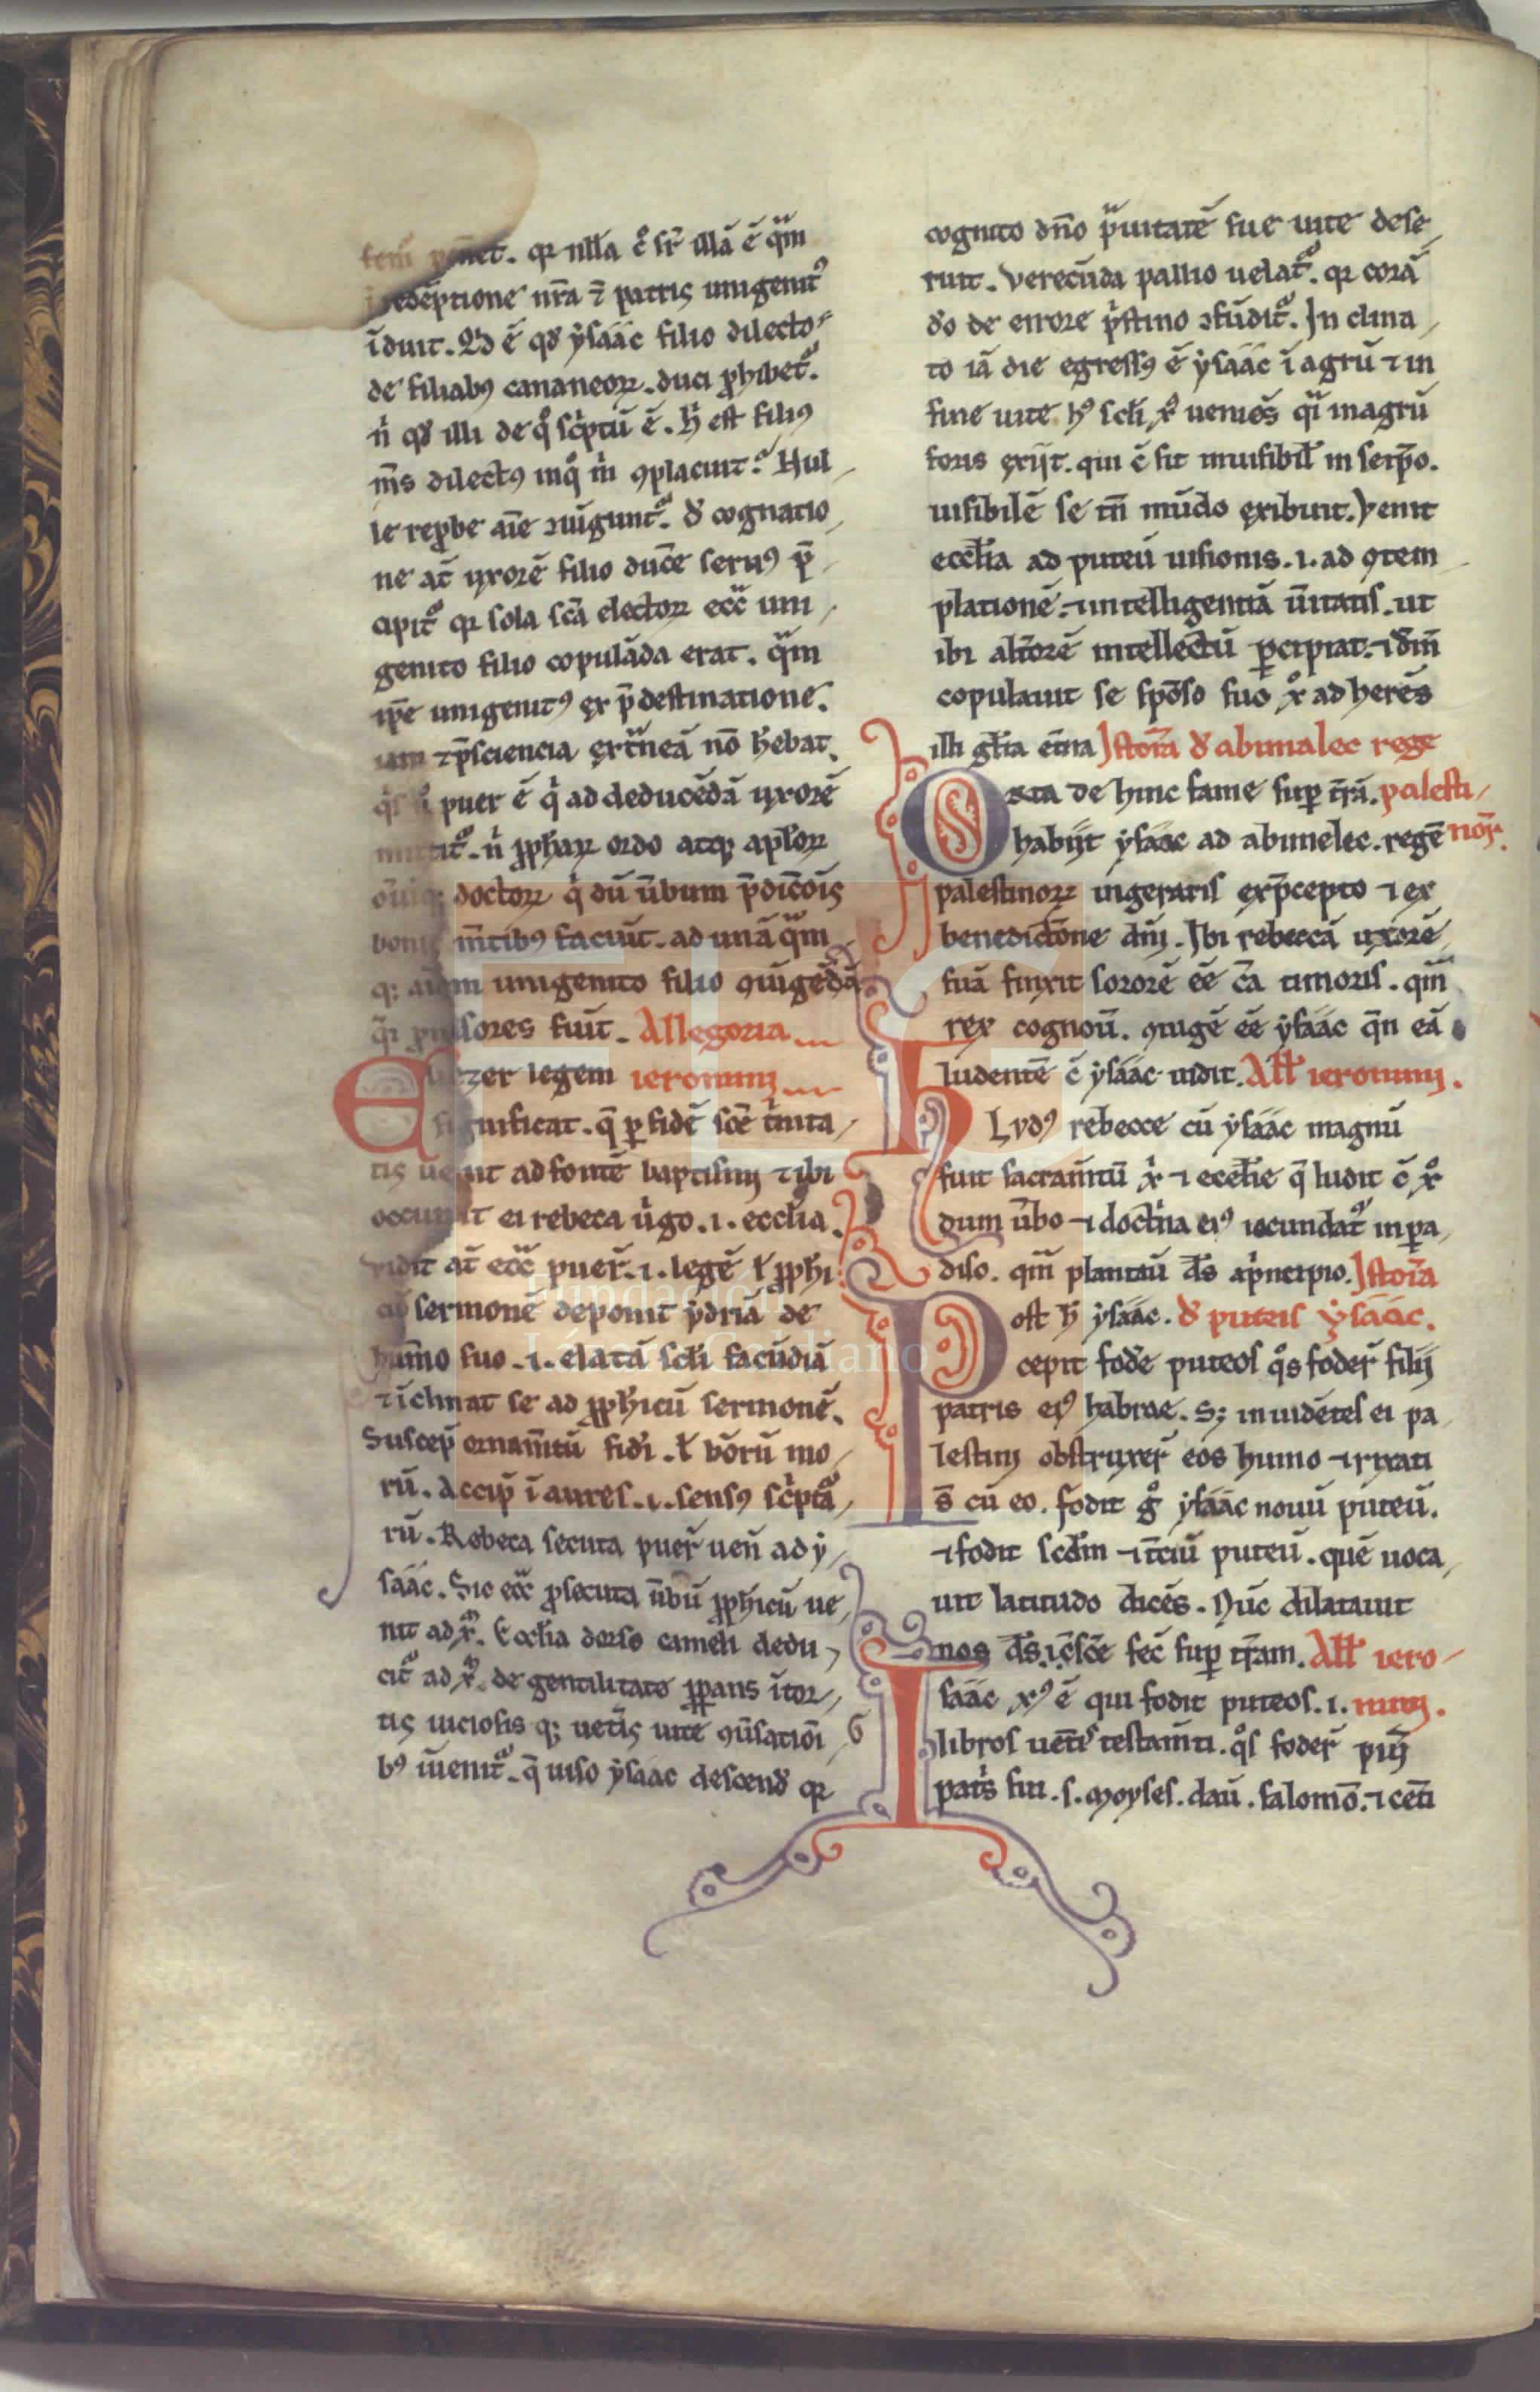 qr nłła c̊ sr̄ illā ē q̃m
redēptione nr̄a ē patris unigenitꝰ
īduit. Qd ē qđ ẏsáác filio dilecto
de filiabꝰ cananeoꝝ. duci ꝓhibet᷑.
n̄ qđ illi de qͦ sc̓ptū ē. h̄ est filiꝰ
m̄s dilectꝰ inqͦ m̓ ꝯplacuit. Nul
le reꝓbe aīe ꝯiūgunt᷑. đ cognatio
ne at̄ uxorē filio duce᷑ seruꝰ p̄
cipit᷑ qr sola sc̄a electoꝝ ecc̄ uni
genito filio copulāda erat. q̃m
ip̄e unigenitꝰ ex p̄destinatione.
⁊ p̄sciencia extͣneā nō h̄ebat.
puer ē q̓ ad deducēdā uxorē
n̄ ꝓph̄aꝝ ordo atqꝫ apl̓oꝝ
doctoꝝ q̓ dū ūbum p̄dic̄ois
m̄tibꝰ faciūt. ad unā q̃m
qꝫ unigenito filio ꝯiūgēdā
sores fiūt. Allegoria
legem ieronimi
significat. q̄ ꝑ fidē sc̄e t̓nita
tis uenit ad fontē baptismi ⁊ ibi
occurrit ei rebeca ūgo. i. eccl̄ia.
uidit at̄ ecc̄ puer̄. i. legē ł ꝓph̄i
sermonē deponit ẏdriā de
hum̄o suo. i. elatā sc̄li facūdiā
⁊ īclinat se ad ꝓph̄icū sermonē.
Suscep̄ ornam̄tū fidi. ł bōrū mo
rū. Accip̄ ī aures. i. sensꝰ sc̓ptā
rū. Rebeca secuta puer̄ uen̄ ad ẏ
sáác. Sic ecc̄ ꝓsecuta ūbū ꝓph̄icū ue
nit ad xp̄m. Eccl̄ia dorso cameli dedu
cit᷑ ad xp̄m. de gentilitate ꝓꝑans ītor
tis uiciosis qꝫ uet̓is uite ꝯūsatiōi
bꝰ īuenit᷑. q̄ uiso ẏsáác descenđ qr
cognito dn̄o pͣuitatē sue uite dese
ruit. Verecūda pallio uelat᷑. qr corā
đo de errore p̓stino ꝯfūdit᷑. In clina
to iā die egressꝰ ē ẏsáác ī agrū ⁊ in
fine uite hꝰ scl̄i xp̄ ueniēs q̓i in agrū
foris exijt. qui c̄ sit inuisibil̄ in seip̄o.
uisibilē se tn̄ mūdo exibuit. Venit
eccl̄ia ad puteū uisionis. i. ad ꝯtem
plationē. ⁊ intelligentiā ūitatis. ut
ibi altiorē intellectū ꝑcipiat. ⁊ đm̄
copulauit se spōso suo xͦ ad herēs
illi gl̄ia et̄na Istoria đ abimalec rege
Orta de hinc fame suꝑ tr̄ā. palesti
habijt ẏsáác ad abimelec. regē noꝝ.
palestinoꝝ ingeraris ex p̄cepto ⁊ ex
benedictōne dn̄i. Ibi rebeccā uxorē
suā finxit sororē eē c̄a timoris. qm̄
rex cognoū. ꝯiugē eē ẏsáác q̄n eā
ludentē c̄ ẏsáác uidit. All̄ ieronimi.
Lvdꝰ rebecce cū ẏsáác magnū
fuit sacram̄tū xp̓i ⁊ eccl̄ie q̄ ludit c̄ xͦ
dum ūbo ⁊ doct̓na eiꝰ iocundat᷑ in ꝑa
diso. qm̄ plantaū ds̄ a p̓ncipio. Istoria
Post h̄ ẏsáác. đ puteis ẏsáác.
cepit fode᷑ puteos qͦs foder̄ filij
patris eiꝰ habrae. Sꝫ inuidētes ei pa
lestini obstruxer̄ eos humo ⁊ rixati
s̄ cū eo. fodit gͦ ẏsáác nouū puteū.
⁊ fodit scđm ⁊ t̄ciū puteū. quē uoca
uit latitudo dicēs. Nūc dilatauit
nos ds̄. ⁊ c̄sc̄e fec̄ suꝑ tr̄am. All̄ iero
Isáác xꝰ ē qui fodit puteos. i. nimi.
libros uet̓is testam̄ti. qͦs foder̄ pūi
pat̓s sui. s. moyses. dauī. salomō. ⁊ cet̄i